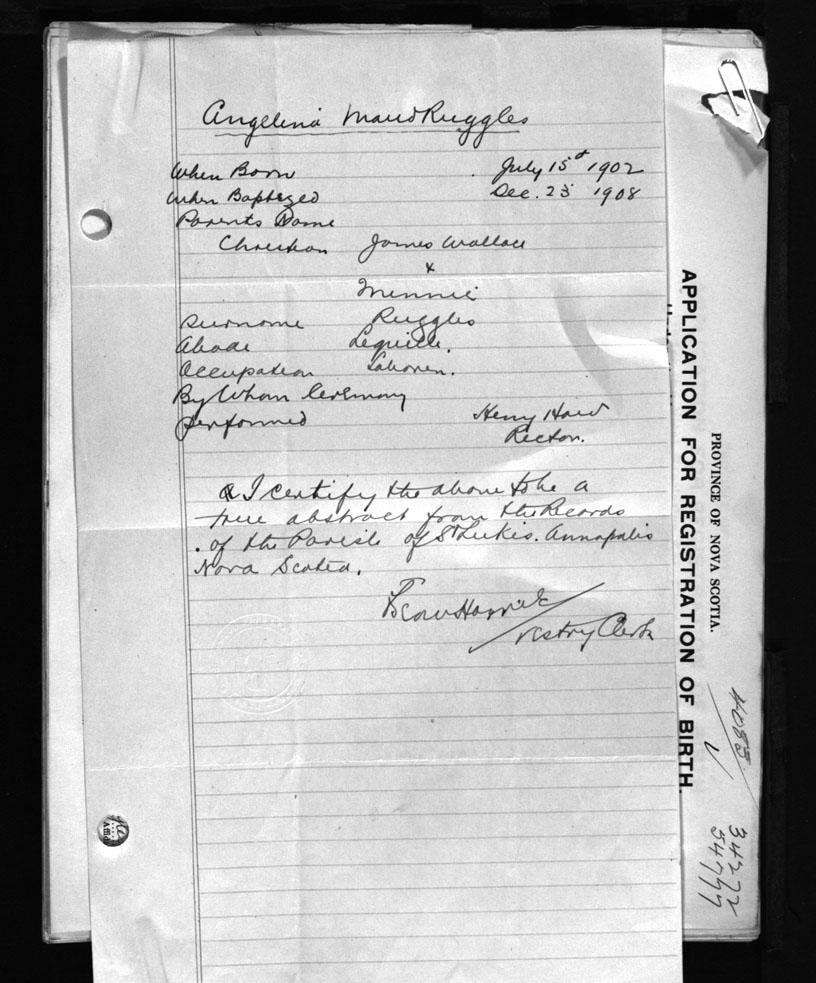 Angelina Maud Ruggles
When Born July 15th 1902
When Baptized Dec. 23 1908
Parents Name
Christian James Wallace
&
Minnie
Surname Ruggles
Abode Lequille.
Occupation Laborer.
By Whom Ceremony
performed Henry How
Rector.
I certify the above to be a
true abstract from the Records
of the Parish of St Lukes. Annapolis
Nova Scotia.
Vestry Clerk
APPLICATION FOR REGISTRATION OF BIRTH.
PROVINCE OF NOVA SCOTIA.
4083
34772
54777
Affid